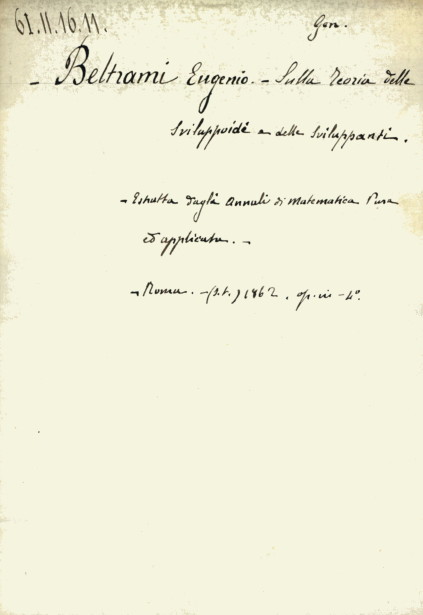 61.11.16.11. Gen.
- Beltrami Eugenio. - Sulla Teoria delle
Sviluppoidi e delle Sviluppanti.
- Estratta dagli Annali di Matematica Pura
ed applicata. -
- Roma. - (s.t.) 1862. op. in - 4°.